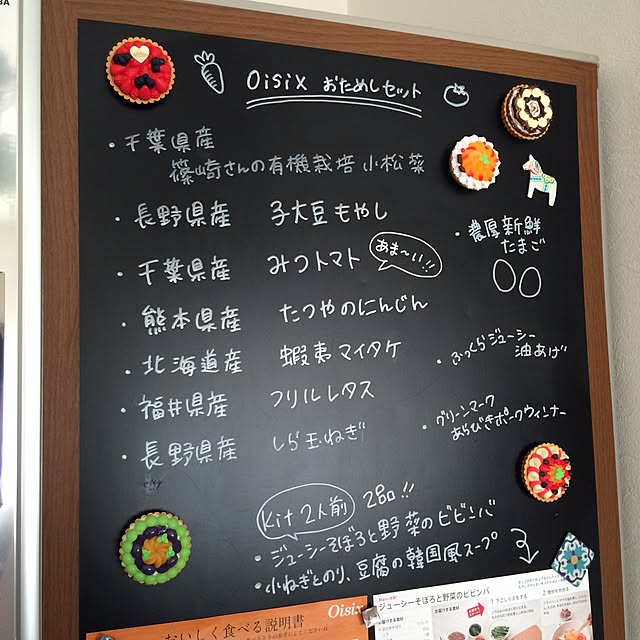 Oisix おためしセット
・千葉県産
篠崎さんの有機栽培 小松菜
・長野県産 子大豆もやし
・千葉県産 みつトマト
あま〜い!!
・熊本県産 たつやのにんじん
・北海道産 蝦夷マイタケ
・福井県産 フリルレタス
・長野県産 しら玉ねぎ
・濃厚新鮮
たまご
・ふっくらジューシー
油あげ
・グリーンマーク
あらびきポークウィンナー
Kit 2人前 2品!!
・ジューシーそぼろと野菜のビビンバ
・小ねぎとのり、豆腐の韓国風スープ
おいしく食べる説明書
Oisix
ジューシーそぼろと野菜のビビンバ